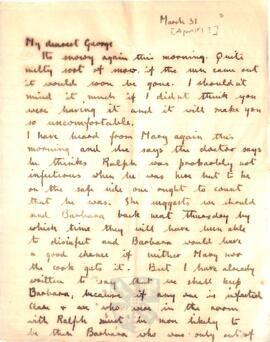 March 31
[April 1?]
My dearest George
Its snowy again this morning. Quite
melty sort of snow, if the sun came out
it would soon be gone. I shouldn't
mind it much if I didn't think you
were having it and it will make you
so uncomfortable.
I have heard from Mary again this
morning and she says the doctor says
he thinks Ralph was probably not
infectious when he was here but to be
on the safe side one ought to count
that he was. She suggests we should
send Barbara back next Thursday by
which time they will have been able
to disinfect and Barbara would have
a good chance if neither Mary nor
the cook gets it. But I have already
written to say that we shall keep
Barbara, because if any one is infected
Clare & we who were in the room
with Ralph must be more likely to
be than Barbara who was only out of